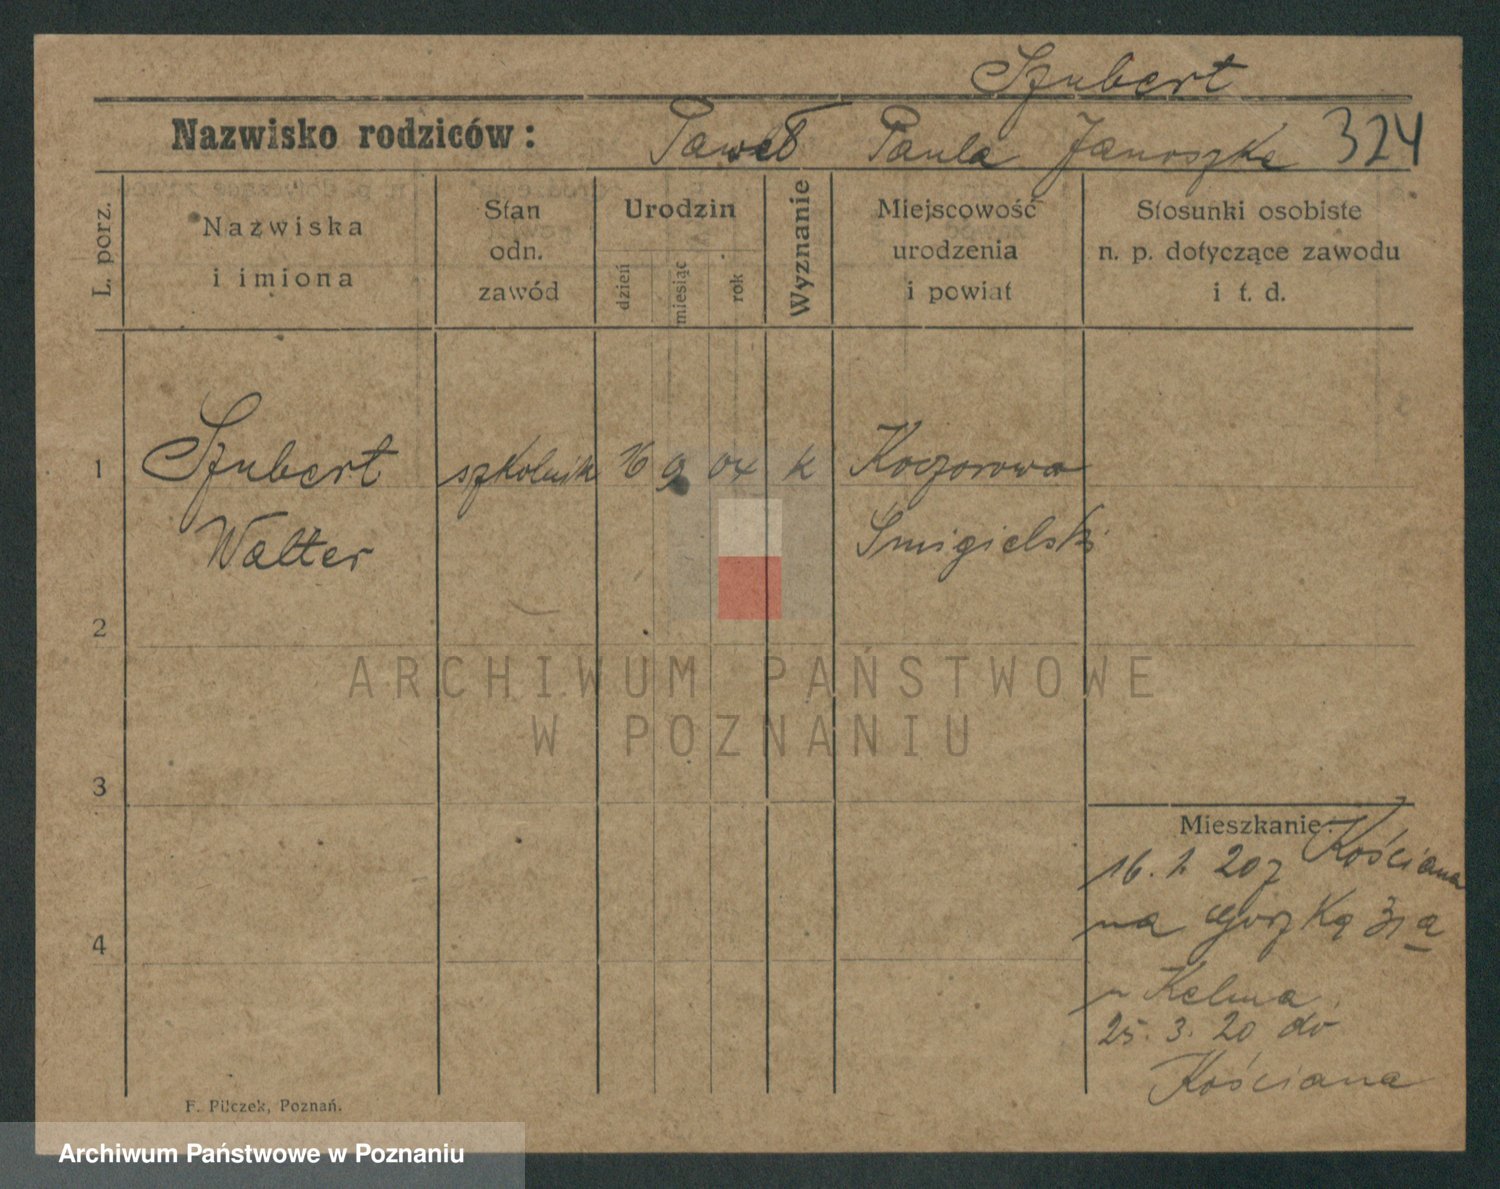 Szubert
Nazwisko rodziców: Paweł Paula Janoszke 324
L. porz.
Nazwiska
i imiona
Stan
odn.
zawód
Urodzin
dzień
miesiąc
rok
Wyznanie
Miejscowość
urodzenia
i powiat
Stosunki osobiste
n. p. dotyczące zawodu
i t. d.
1 Szubert szkolnik 16 9 04 k Koczorowa
Walter Smigielski
2
3
Mieszkanie:
16. 1. 20 z Kościana
na Górzką 31 a
4
u Kelma
25. 3. 20 do
Kościana
F. Pilczek, Poznań.
ARCHIWUM PAŃSTWOWE
W POZNANIU
Archiwum Państwowe w Poznaniu